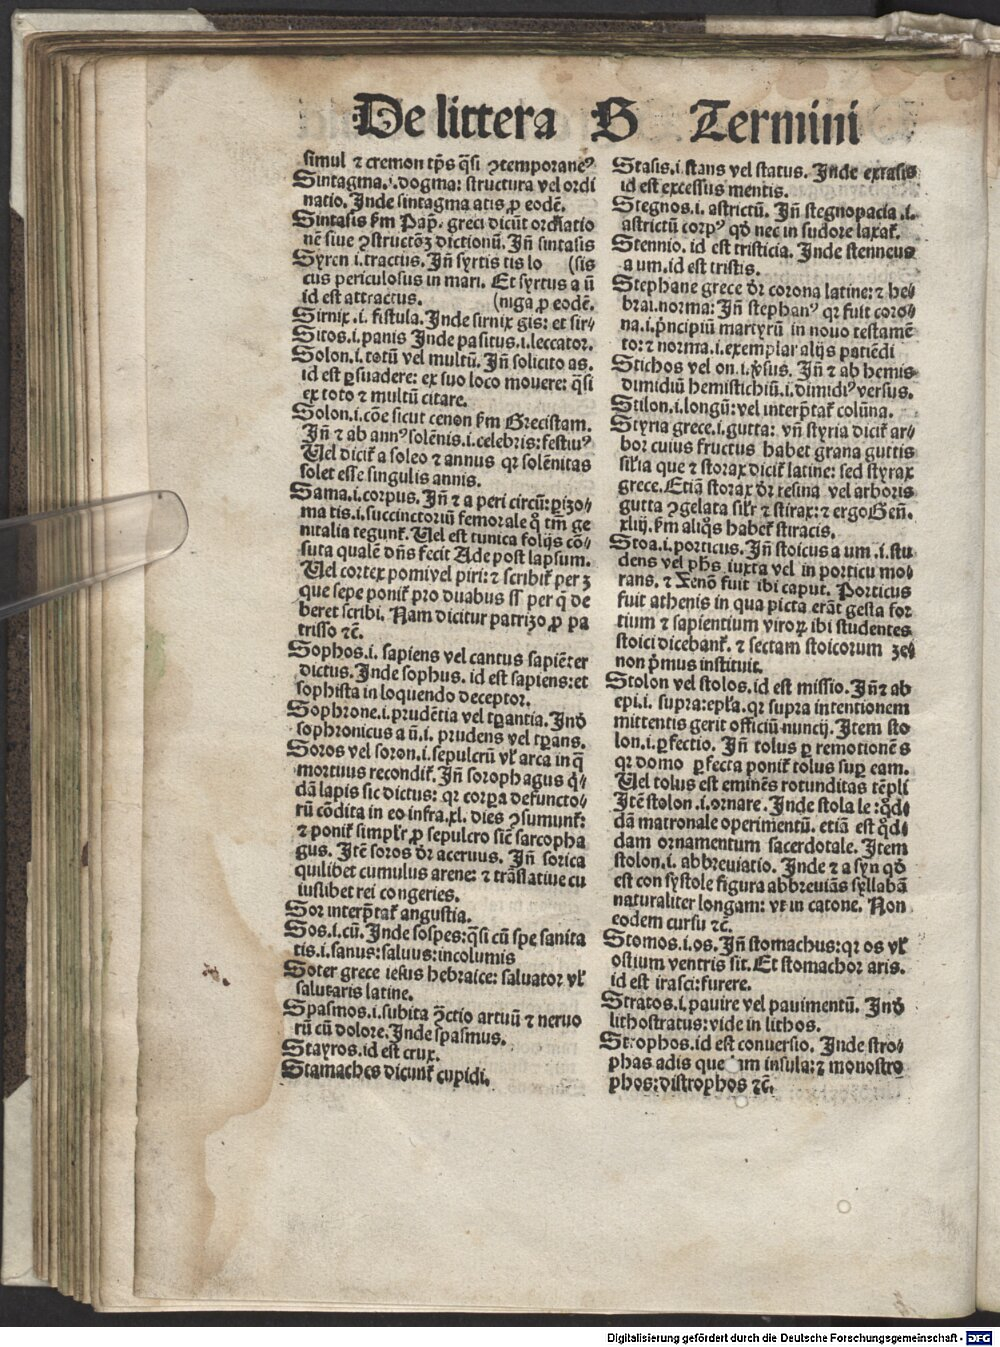 De littera S Termini
simul ⁊ cremon tp̄s q̄si ꝯtemporaneꝰ
Sintagma.i.dogma: structura vel ordi
natio. Inde sintagma atis ꝓ eodē.
Sintasis ẜm Pap. greci dicūt ordīatio
nē siue ꝯstructōꝫ dictionū. Iñ sintasis
Syren i.tractus. Iñ syrtis tis lo (sis
cus periculosus in mari. Et syrtus a ū
id est attractus. (niga ꝓ eodē.
Sirnix.i. fistula. Inde sirnix gis: et sir⸗
Sitos.i.panis Inde pasitus.i.leccator.
Solon.i.totū vel multū. Iñ solicito as.
id est ꝑsuadere: ex suo loco mouere: q̄si
ex toto ⁊ multū citare.
Solon.i.cōe sicut cenon ẜm Grecistam.
Iñ ⁊ ab annꝰ solēnis.i.celebris: festiuꝰ
Uel dicit᷑ a soleo ⁊ annus qꝛ solēnitas
solet esse singulis annis.
Sama.i.corpus. Iñ ⁊ a peri circū: ꝑizo⸗
ma tis.i.succinctoriū femorale q̊ tm̄ ge
nitalia tegunt᷑. Uel est tunica folijs cō⸗
suta qualē dn̄s fecit Ade post lapsum.
Uel cortex pomi vel piri: ⁊ scribit᷑ per ꝫ
que sepe ponit᷑ pro duabus ss per q̄ de
beret scribi. Nam dicitur patrizo ꝓ pa
trisso ⁊c̄.
Sophos.i. sapiens vel cantus sapiēter
dictus. Inde sophus. id est sapiens: et
sophista in loquendo deceptor.
Sophrone.i.prudētia vel tꝑantia. Inđ
sophronicus a ū.i. prudens vel tꝑans.
Soros vel soron.i.sepulcrū vł arca in q̄
mortuus recondit᷑. Iñ sorophagus q̇⸗
dā lapis sic dictus: qꝛ corꝑa defuncto⸗
rū cōdita in eo infra.xl. dies ꝯsumunt᷑:
⁊ ponit᷑ simpłr ꝓ sepulcro sicē sarcopha
gus. Itē soros dr̄ aceruus. Iñ sorica
quilibet cumulus arene: ⁊ trāslatiue cu
iuslibet rei congeries.
Sor interp̄tat᷑ angustia.
Sos.i.cū. Inde sospes: q̄si cū spe sanita
tis.i.sanus: saluus: incolumis
Soter grece iesus hebraice: saluator vł
salutaris latine.
Spasmos.i.subita ꝯ̄ctio artuū ⁊ neruo
rū cū dolore. Inde spasmus.
Stayros.id est crux.
Stamaches dicunt᷑ cupidi.
Stasis.i.stans vel status. Inde extasis
id est excessus mentis.
Stegnos.i. astrictū. Iñ stegnopacia .i.
astrictū corpꝰ qđ nec in sudore laxat᷑.
Stennio. id est tristicia. Inde stenneus
a um.id est tristis.
Stephane grece dr̄ corona latine: ⁊ he⸗
brai.norma: Iñ stephanꝰ qꝛ fuit coro⸗
na.i.p̄ncipiū martyrū in nouo testamē
to: ⁊ norma.i.exemplar alijs patiēdi
Stichos vel on.i.v̓sus. Iñ ⁊ ab hemis
dimidiū hemistichiū.i.dimidiꝰ versus.
Stilon.i.longū: vel interp̄tat᷑ colūna.
Styria grece.i.gutta: vñ styria dicit᷑ ar⸗
bor cuius fructus habet grana guttis
sił̓ia que ⁊ storax dicit᷑ latine: sed styrax
grece. Etiā storax dr̄ resina vel arboris
gutta ꝯgelata siłr ⁊ stirax: ⁊ ergo Geñ.
xliij. ẜm aliq̊s habet᷑ stiracis.
Stoa.i.porticus. Iñ stoicus a um .i.stu
dens vel ph̄s iuxta vel in porticu mo⸗
rans. ⁊ Xenō fuit ibi caput. Porticus
fuit athenis in qua picta erāt gesta for
tium ⁊ sapientium viroꝝ ibi studentes
stoici dicebant᷑. ⁊ sectam stoicorum ze⸗
non p̓mus instituit.
Stolon vel stolos.id est missio. Iñ ⁊ ab
epi.i. supra: epła. qꝛ supra intentionem
mittentis gerit officiū nuncij. Item sto
lon.i.ꝑfectio. Iñ tolus ꝑ remotionē s
qꝛ domo ꝑfecta ponit᷑ tolus suꝑ eam.
Uel tolus est eminēs rotunditas tēpli
Itē stolon .i.ornare. Inde stola le: q̊d⸗
dā matronale operimentū. etiā est q̊d⸗
dam ornamentum sacerdotale. Item
stolon.i. abbreuiatio. Inde ⁊ a syn qđ
est con systole figura abbreuiās syllabā
naturaliter longam: vt in catone. Non
eodem cursu ⁊c̄.
Stomos.i.os. Iñ stomachus: qꝛ os vł
ostium ventris sit. Et stomachor aris.
id est irasci: furere.
Stratos.i.pauire vel pauimentū. Inđ
lithostratus: vide in lithos.
Strophos.id est conuersio. Inde stro⸗
phas adis insula: ⁊ monostro
phos: distrophos ⁊c̄.
Digitalisierung gefördert durch die Deutsche Forschungsgemeinschaft - DFG